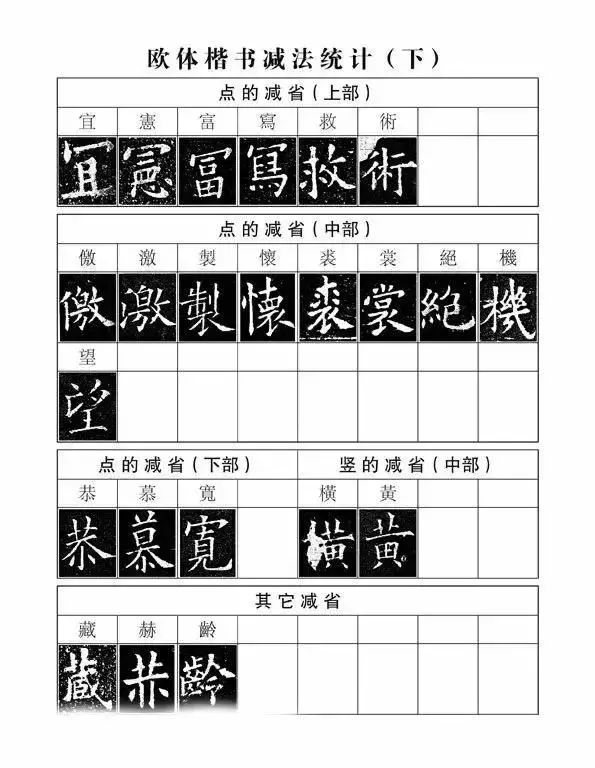 欧体楷书减法统计（下）
点的减省（上部）
宜 憲 富 寫 救 術
宜 憲 富 寫 救 術
点的减省（中部）
儌 激 製 懷 裘 裳 絕 機
儌 激 製 懷 裘 裳 絕 機
望
望
点的减省（下部） 竖的减省（中部）
恭 慕 寬 橫 黃
恭 慕 寬 橫 黃
其它减省
藏 赫 齡
藏 赫 齡